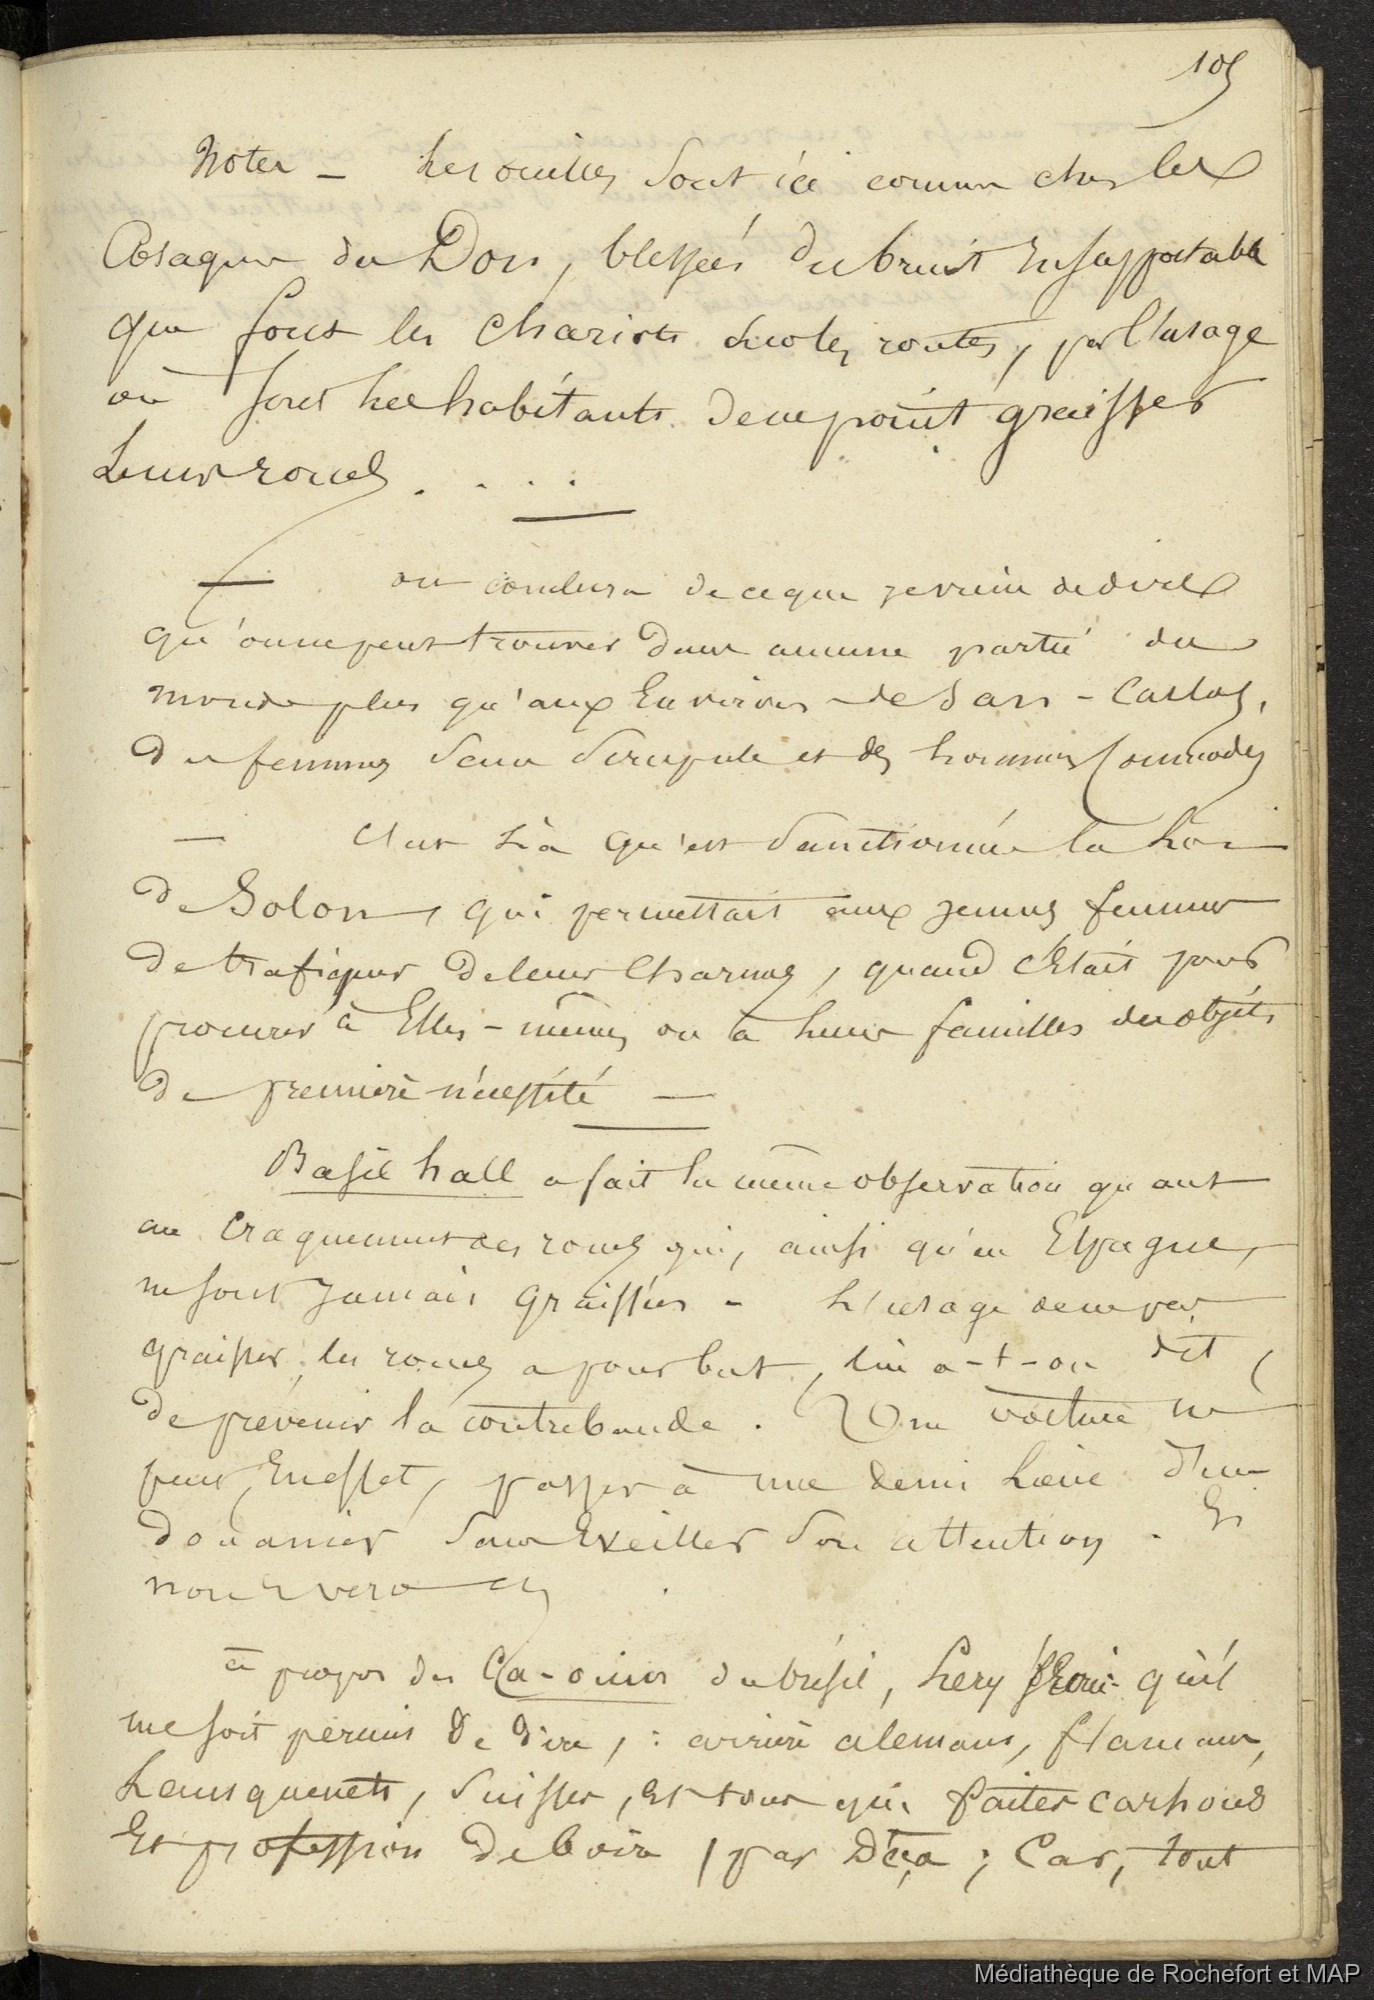 105
Notes - Les oreilles sont ici comme chez les
Cosaques du Don, blessées du bruit insupportable
que font les chariots sur les routes, par l'usage
où sont les habitants de ne point graisser
leurs roues . . . .
— on conclura de ce que je viens de dire
qu'on ne peut trouver dans aucune partie du
monde plus qu'aux Environs de San-Carlos,
des femmes sans scrupule et des hommes commodes
— C'est là qu'est sanctionnée la Loi
de Solon, qui permettait aux jeunes femmes
de trafiquer de leurs charmes, quand c'Etait pour
procurer à Elles-mêmes ou à leurs familles des objets
de première nécessité —
Basil hall a fait la même observation quant
au craquement des roues qui, ainsi qu'en Espagne,
ne sont jamais graissées - L'usage de ne pas
graisser les roues a pour but, lui a-t-on dit,
de prévenir la contrebande. Une voiture ne
peut, En effet, passer à une demi Lieue d'un
douanier sans Eveiller son attention. Se
non e vero &
à propos des Ca-ouins du brésil, Lery qu'il
me soit permis de dire, : arrière alemans, flamans,
Lansquenets, suisses, et tous qui faites carhous
Et profession de boire, par Deça ; Car, tout
Médiathèque de Rochefort et MAP